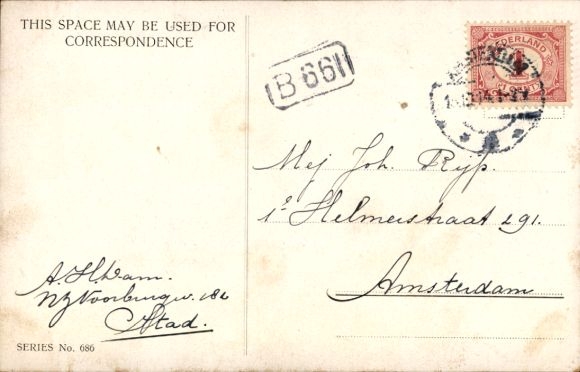 THIS SPACE MAY BE USED FOR
CORRESPONDENCE
B 661
NEDERLAND
Mej Joh. Rijp.
1e Helmerstraat 291.
Amsterdam
A. H. Dam.
NZ Voorburgw. 182
Stad.
SERIES No. 686